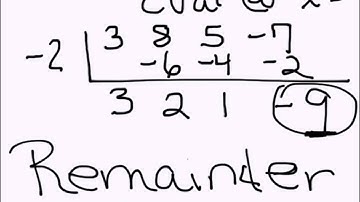 3 8 5 -7
-2
-6 -4 -2
3 2 1 -9
Remainder